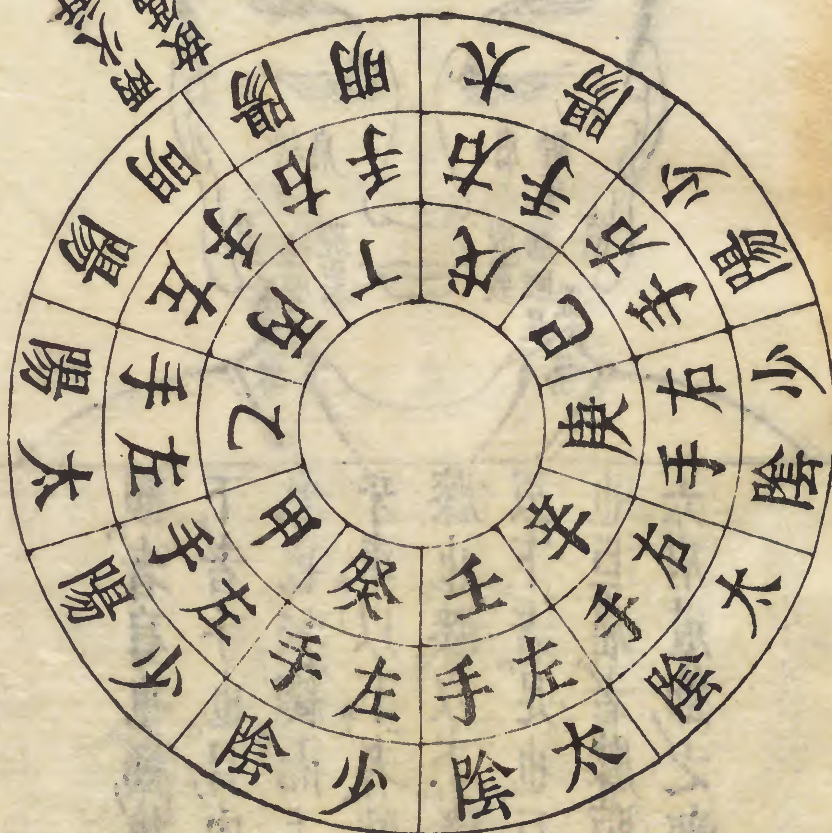 甲 左手 少陽
乙 左手 太陽
丙 左手 陽明
丁 右手 陽明
戊 右手 太陽
己 右手 少陽
庚 右手 少陰
辛 右手 太陰
壬 左手 太陰
癸 左手 少陰